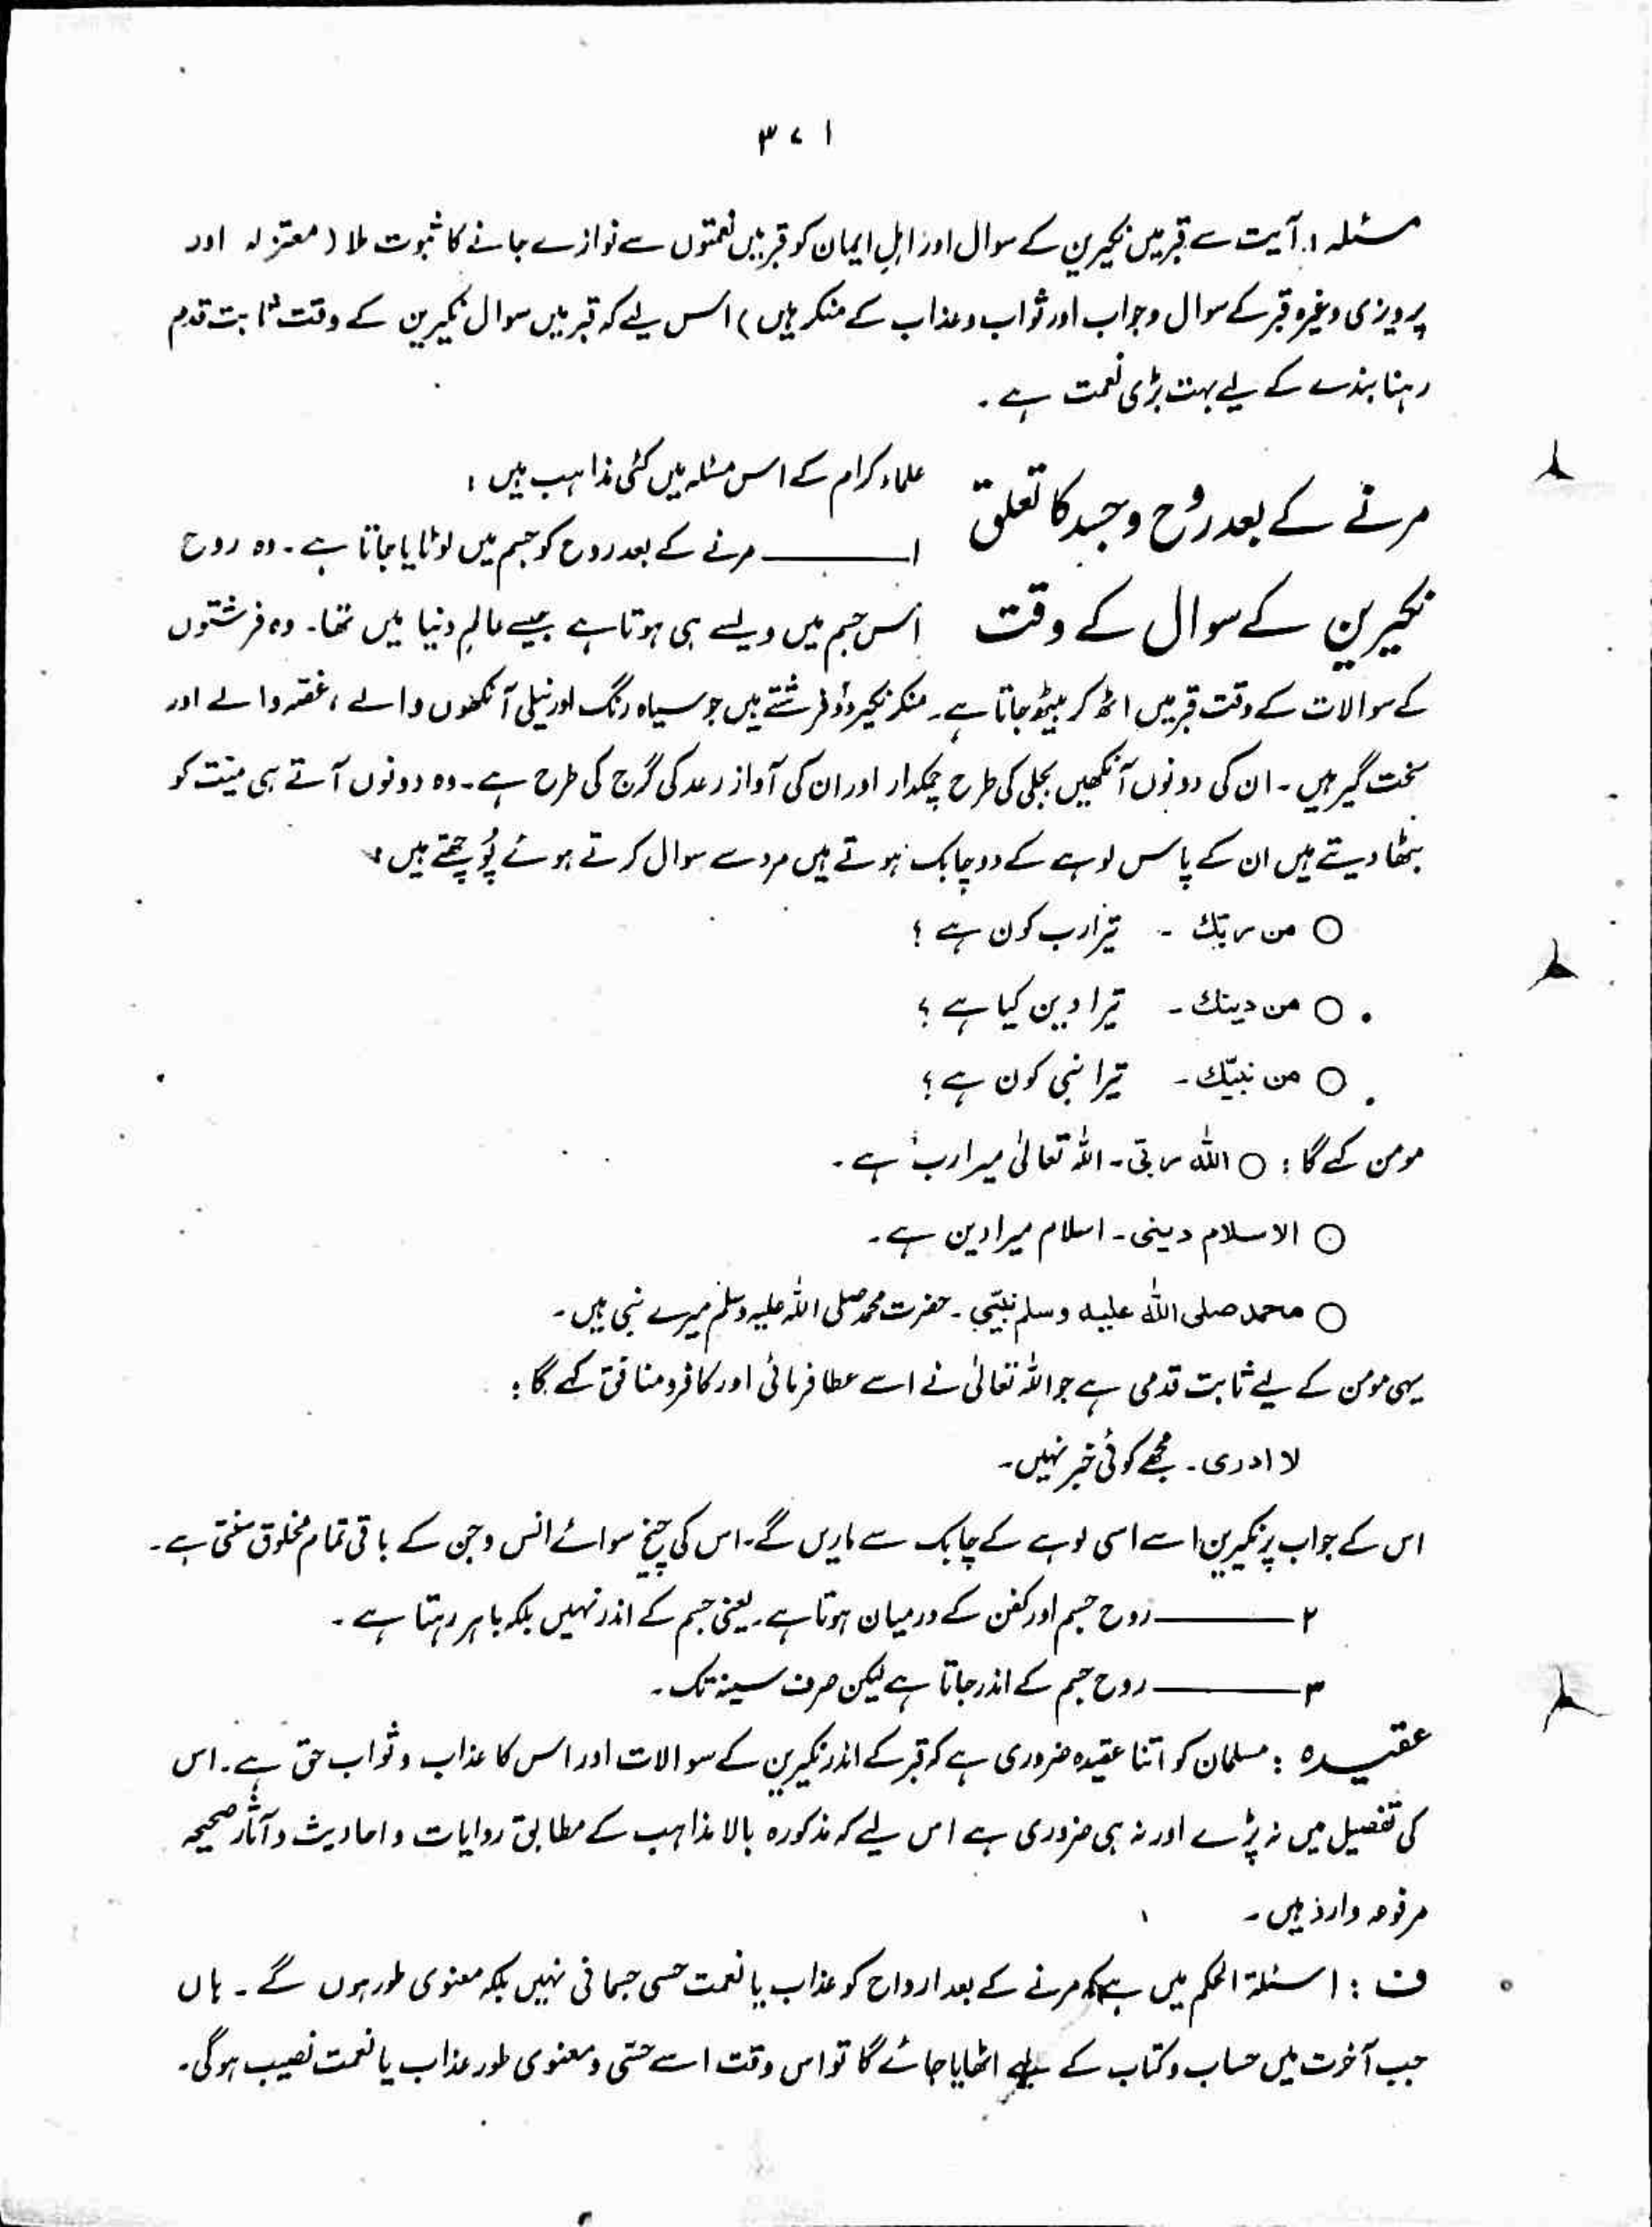 ۳۷۱
مسئلہ : آیت سے قبر میں نکیرین کے سوال اور اہلِ ایمان کو قبر میں نعمتوں سے نوازے جانے کا ثبوت ملا (معتزلہ اور
پرویزی وغیرہ قبر کے سوال وجواب اور ثواب وعذاب کے منکر ہیں) اس لیے کہ قبر میں سوال نکیرین کے وقت ثابت قدم
رہنا بندے کے لیے بہت بڑی نعمت ہے۔
مرنے کے بعد رُوح وجسد کا تعلق
نکیرین کے سوال کے وقت
علماء کرام کے اس مسئلہ میں کئی مذاہب ہیں :
۱ــــــــ مرنے کے بعد روح کو جسم میں لوٹایا جاتا ہے۔ وہ روح
اس جسم میں ویسے ہی ہوتا ہے جیسے عالمِ دنیا میں تھا۔ وہ فرشتوں
کے سوالات کے وقت قبر میں اٹھ کر بیٹھ جاتا ہے۔ منکر نکیر دو فرشتے ہیں جو سیاہ رنگ اور نیلی آنکھوں والے، غصّہ والے اور
سخت گیر ہیں۔ ان کی دونوں آنکھیں بجلی کی طرح چمکدار اور ان کی آواز رعد کی گرج کی طرح ہے۔ وہ دونوں آتے ہی میّت کو
بٹھا دیتے ہیں ان کے پاس لوہے کے دو چابک ہوتے ہیں مردے سوال کرتے ہوئے پُوچھتے ہیں :
○ من ربّك ۔ تیرا رب کون ہے ؟
○ من دینك ۔ تیرا دین کیا ہے ؟
○ من نبیّك ۔ تیرا نبی کون ہے ؟
مومن کہے گا : ○ اللّٰہ ربّی ۔ اللّٰہ تعالیٰ میرا رب ہے ۔
○ الاسلام دینی ۔ اسلام میرا دین ہے ۔
○ محمد صلی اللّٰہ علیہ وسلم نبیّی ۔ حضرت محمد صلی اللّٰہ علیہ وسلم میرے نبی ہیں ۔
یہی مومن کے لیے ثابت قدمی ہے جو اللّٰہ تعالیٰ نے اسے عطا فرمائی اور کافر و منافق کہے گا :
لا ادری ۔ مجھے کوئی خبر نہیں ۔
اس کے جواب پر نکیرین اسے اسی لوہے کے چابک سے ماریں گے۔ اس کی چیخ سوائے انس وجن کے باقی تمام مخلوق سنتی ہے ۔
۲ــــــــ روح جسم اور کفن کے درمیان ہوتا ہے۔ یعنی جسم کے اندر نہیں بلکہ باہر رہتا ہے ۔
۳ــــــــ روح جسم کے اندر جاتا ہے لیکن صرف سینہ تک ۔
عقیدہ : مسلمان کو اتنا عقیدہ ضروری ہے کہ قبر کے اندر نکیرین کے سوالات اور اس کا عذاب وثواب حق ہے۔ اس
کی تفصیل میں نہ پڑے اور نہ ہی ضروری ہے اس لیے کہ مذکورہ بالا مذاہب کے مطابق روایات و احادیث و آثار صحیحہ
مرفوعہ وارد ہیں ۔
ف : اسئلۃ الحکم میں ہے کہ مرنے کے بعد ارواح کو عذاب یا نعمت حسی جسمانی نہیں بلکہ معنوی طور ہوں گے ۔ ہاں
جب آخرت میں حساب وکتاب کے لیے اٹھایا جائے گا تو اس وقت اسے حسّی ومعنوی طور عذاب یا نعمت نصیب ہوگی ۔